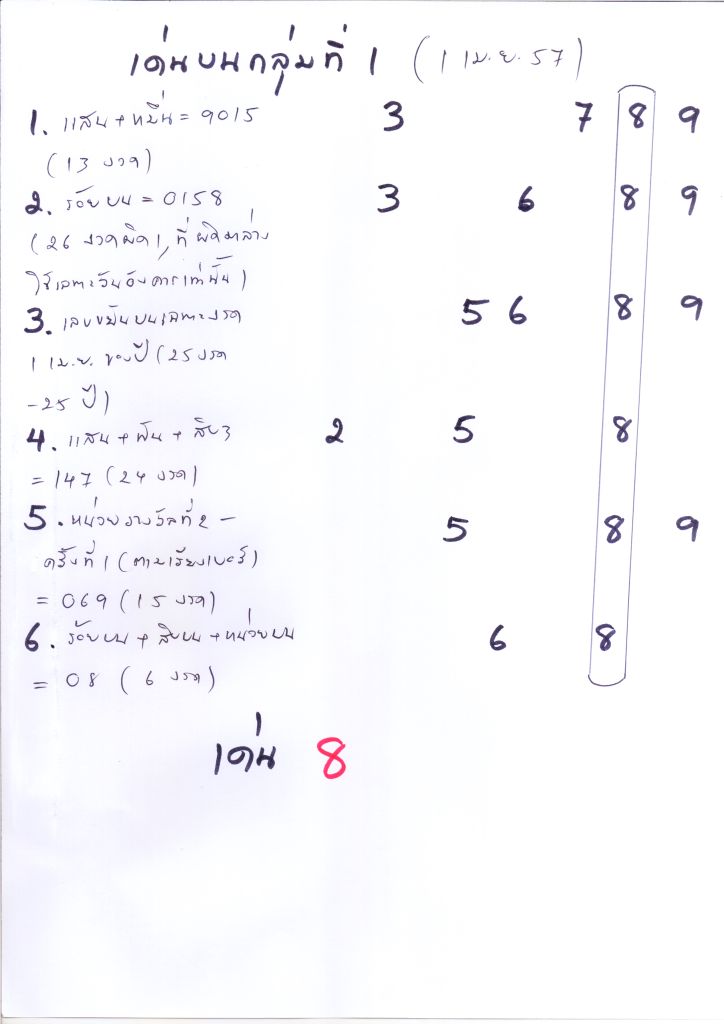 เด่นบนกลุ่มที่ 1 (1 เม.ย. 57)
1. แสน + หมื่น = 9015 3 7 8 9
(13 งวด)
2. ร้อยบน = 0158 3 6 8 9
(26 งวดผิด 1, ที่ผิด
ใช้เฉพาะวันอังคารเท่านั้น)
3. เลข บนเฉพาะงวด 5 6 8 9
1 เม.ย. ของปี (25 งวด
-25 ปี)
4. แสน + พัน + สิบ3 2 5 8
= 147 (24 งวด)
5. หน่วยรางวัลที่ 2 - 5 8 9
ครั้งที่ 1 (ตามเรียงเบอร์)
= 069 (15 งวด)
6. ร้อยบน + สิบบน + หน่วยบน 6 8
= 08 (6 งวด)
เด่น 8